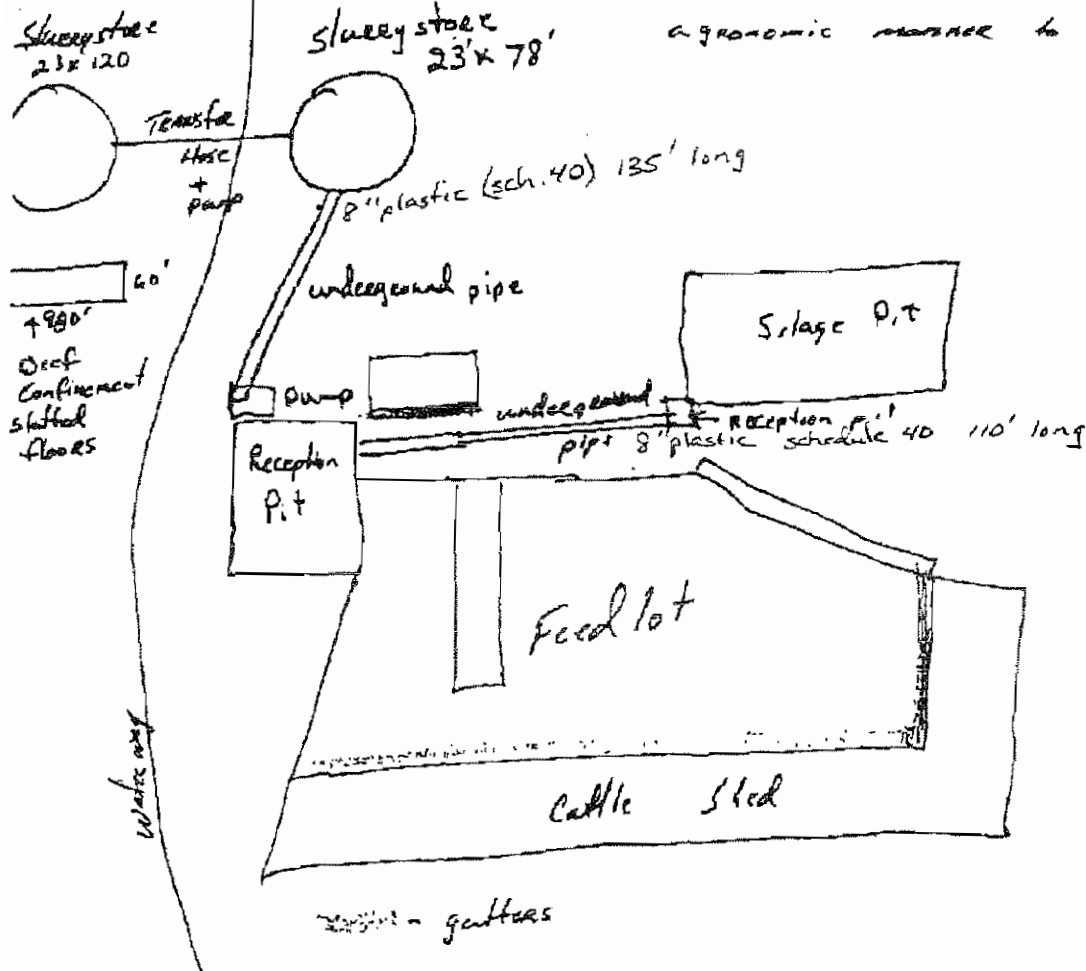 Slurrystore
23 x 120
Slurrystore
23' x 78'
agronomic manner to
Transfer
Hose
+
pump
8" plastic (sch. 40) 135' long
underground pipe
60'
Beef
Confinement
slatted
floors
pump
Silage Pit
underground
Reception pit
pipe 8" plastic schedule 40 110' long
Reception
Pit
Feed lot
Waterway
Cattle Shed
- gutters